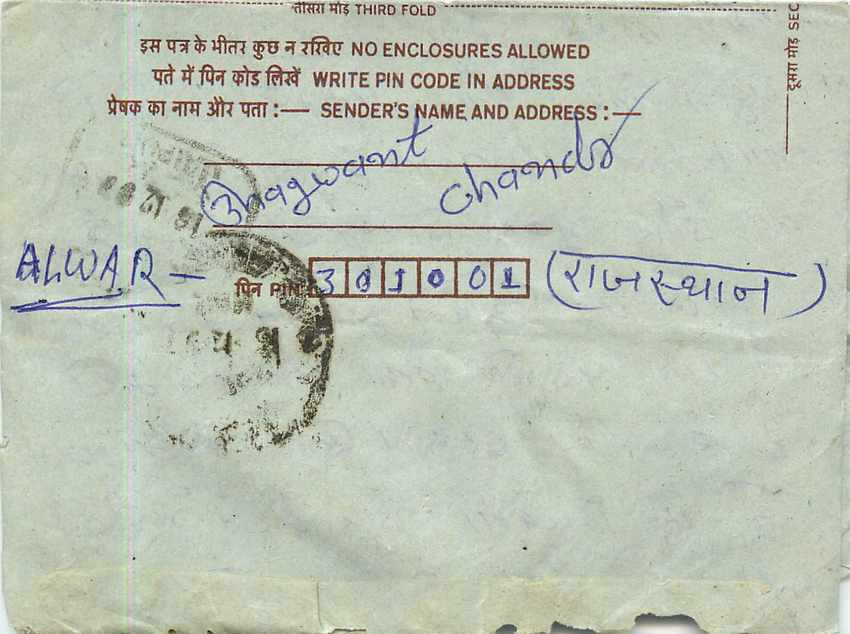 तीसरा मोड़ THIRD FOLD
दूसरा मोड़ SEC
इस पत्र के भीतर कुछ न रखिए NO ENCLOSURES ALLOWED
पते में पिन कोड लिखें WRITE PIN CODE IN ADDRESS
प्रेषक का नाम और पता :— SENDER'S NAME AND ADDRESS :—
Bhagwant Chandr
ALWAR — पिन PIN 301001 (राजस्थान)